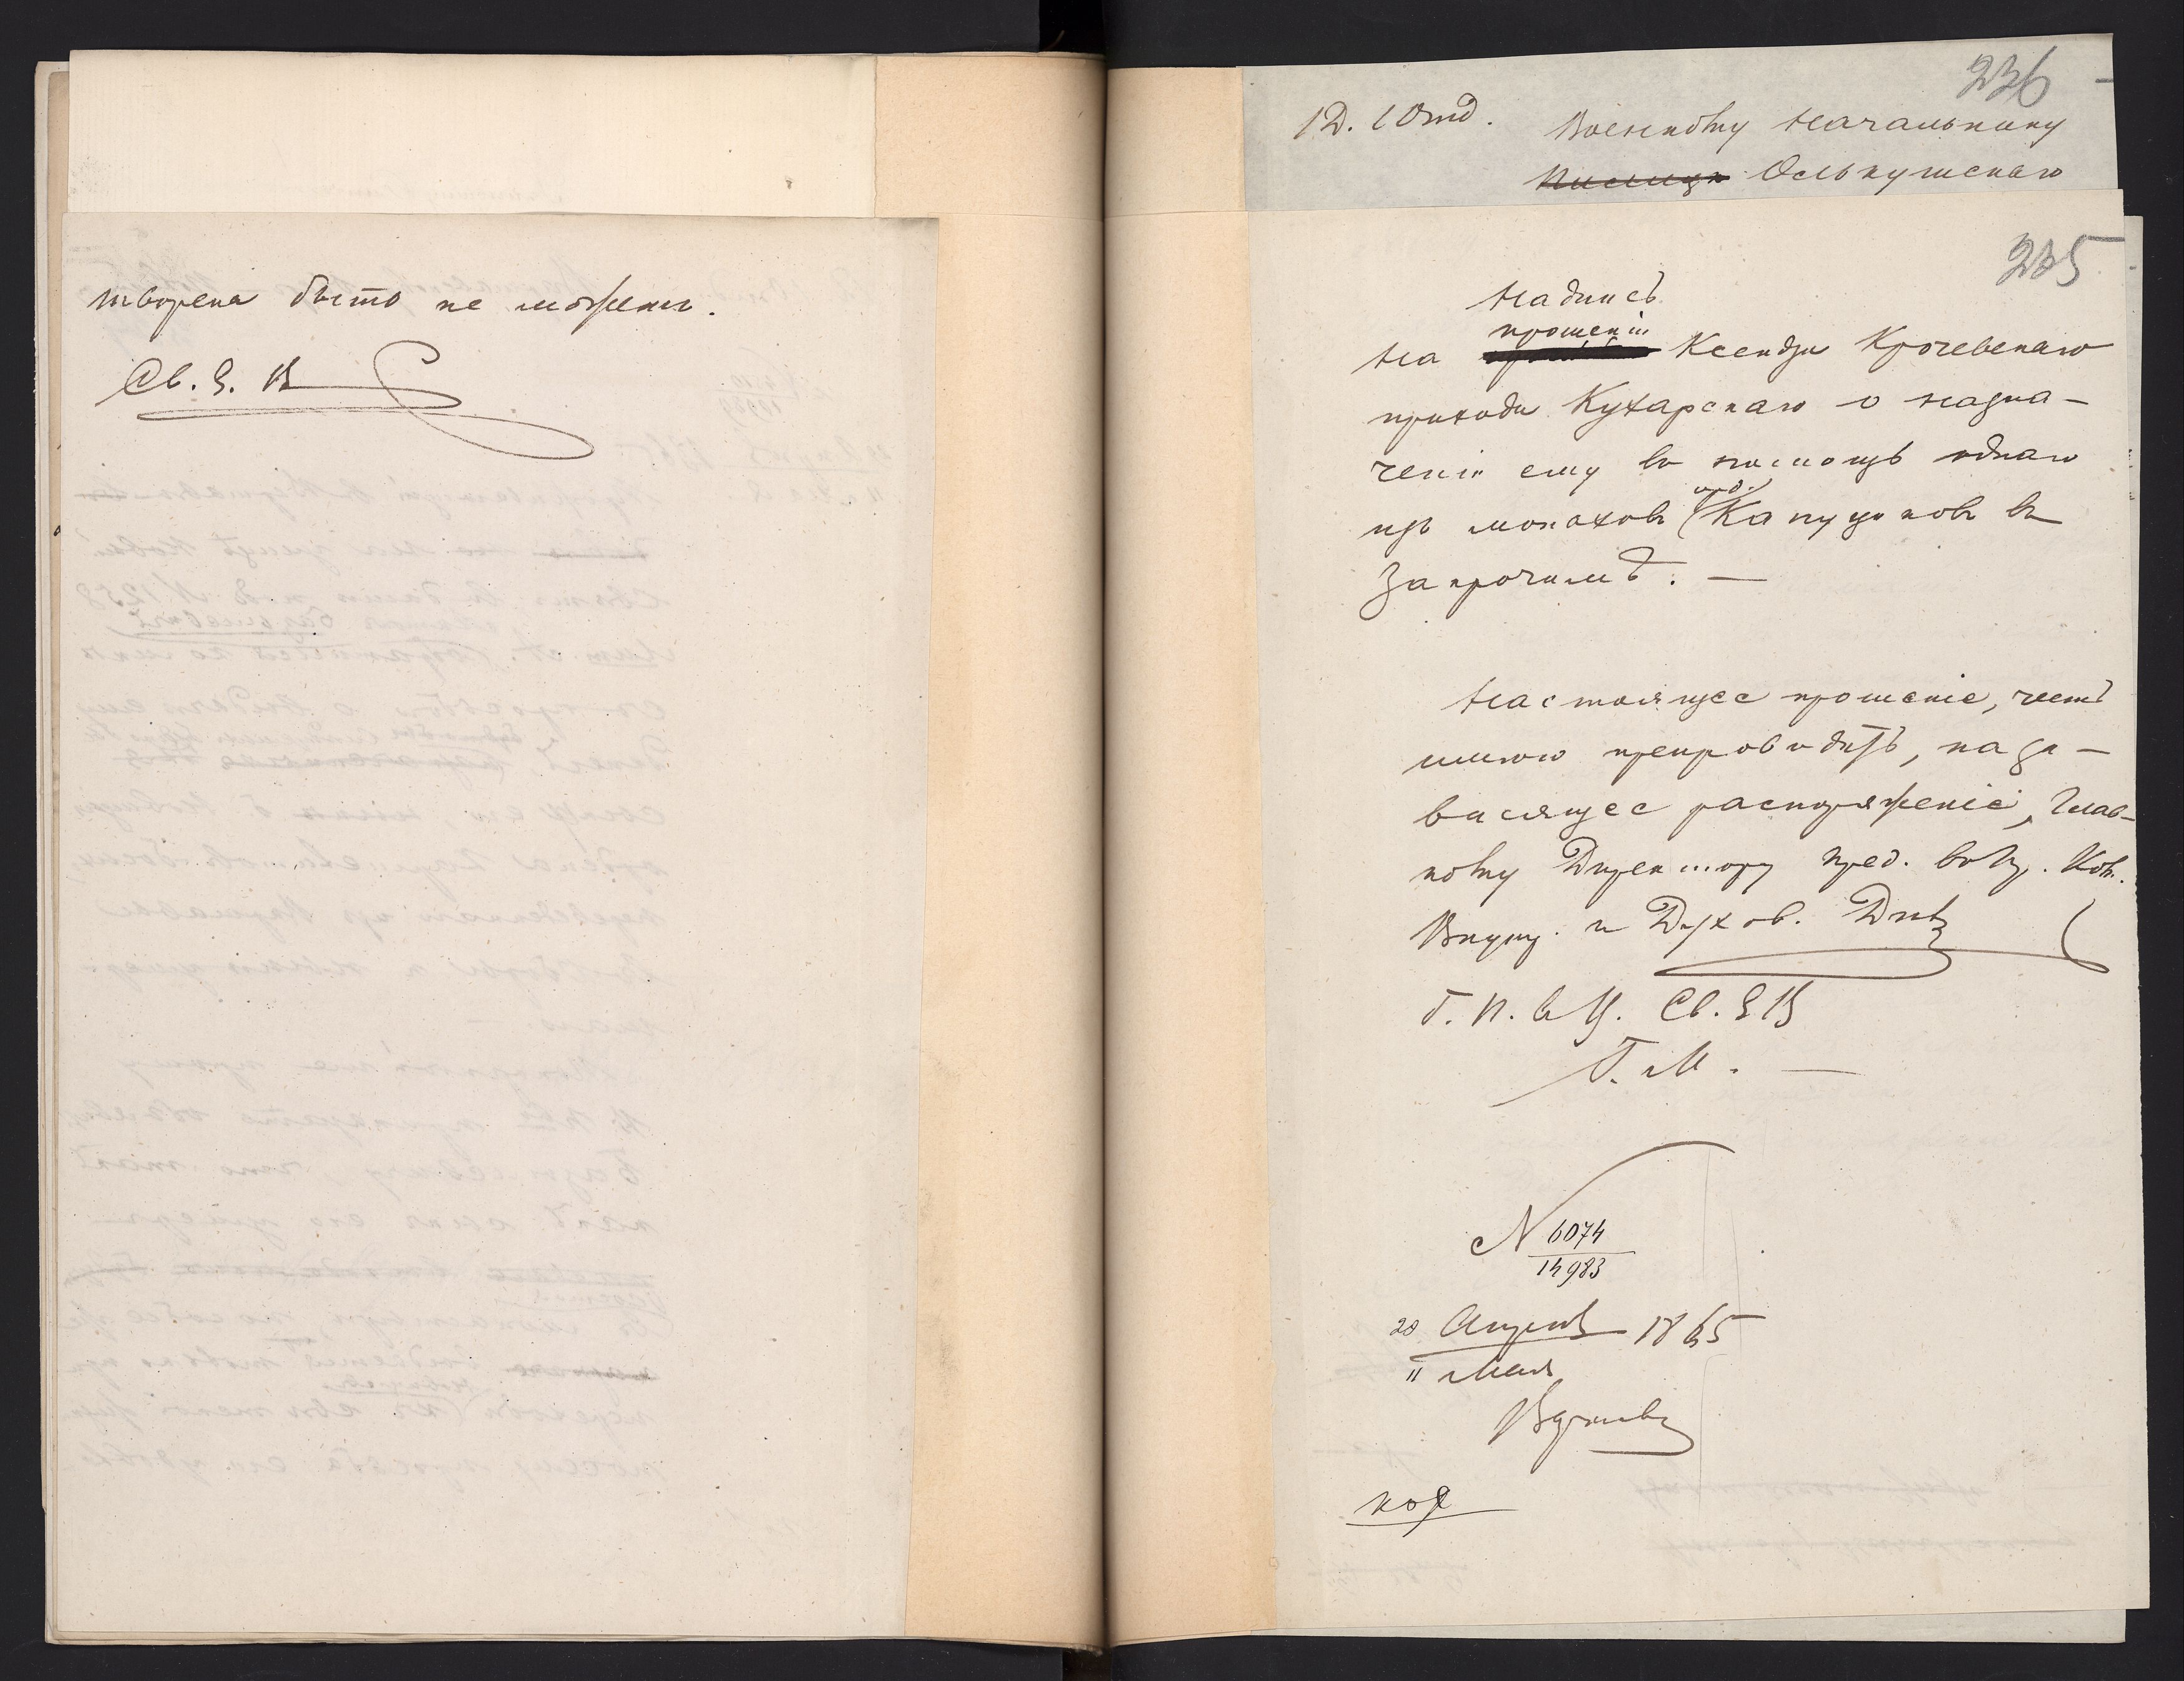 творена быть не можетъ.
Св. Е. В
236
1 Д. 1 Отд.
Военному Начальнику
Олькушскаго
235
Надпись
на прошеніи Ксендза Крочевскаго
прихода Кухарскаго о назна-
ченіи ему въ помощь однаго
изъ монаховъ орд. Капуциновъ въ
Закрочимѣ. —
Настоящее прошеніе, честь
имѣю препроводить, на за-
висящее распоряженіе, Глав-
ному Директору Пред. въ Пр. Ком.
Внутр. и Духов. Дѣлъ
Г. П. въ Ц. Св. Е В
Г. М. —
N 6074
14983
28 Апрѣля 1865
11 Мая